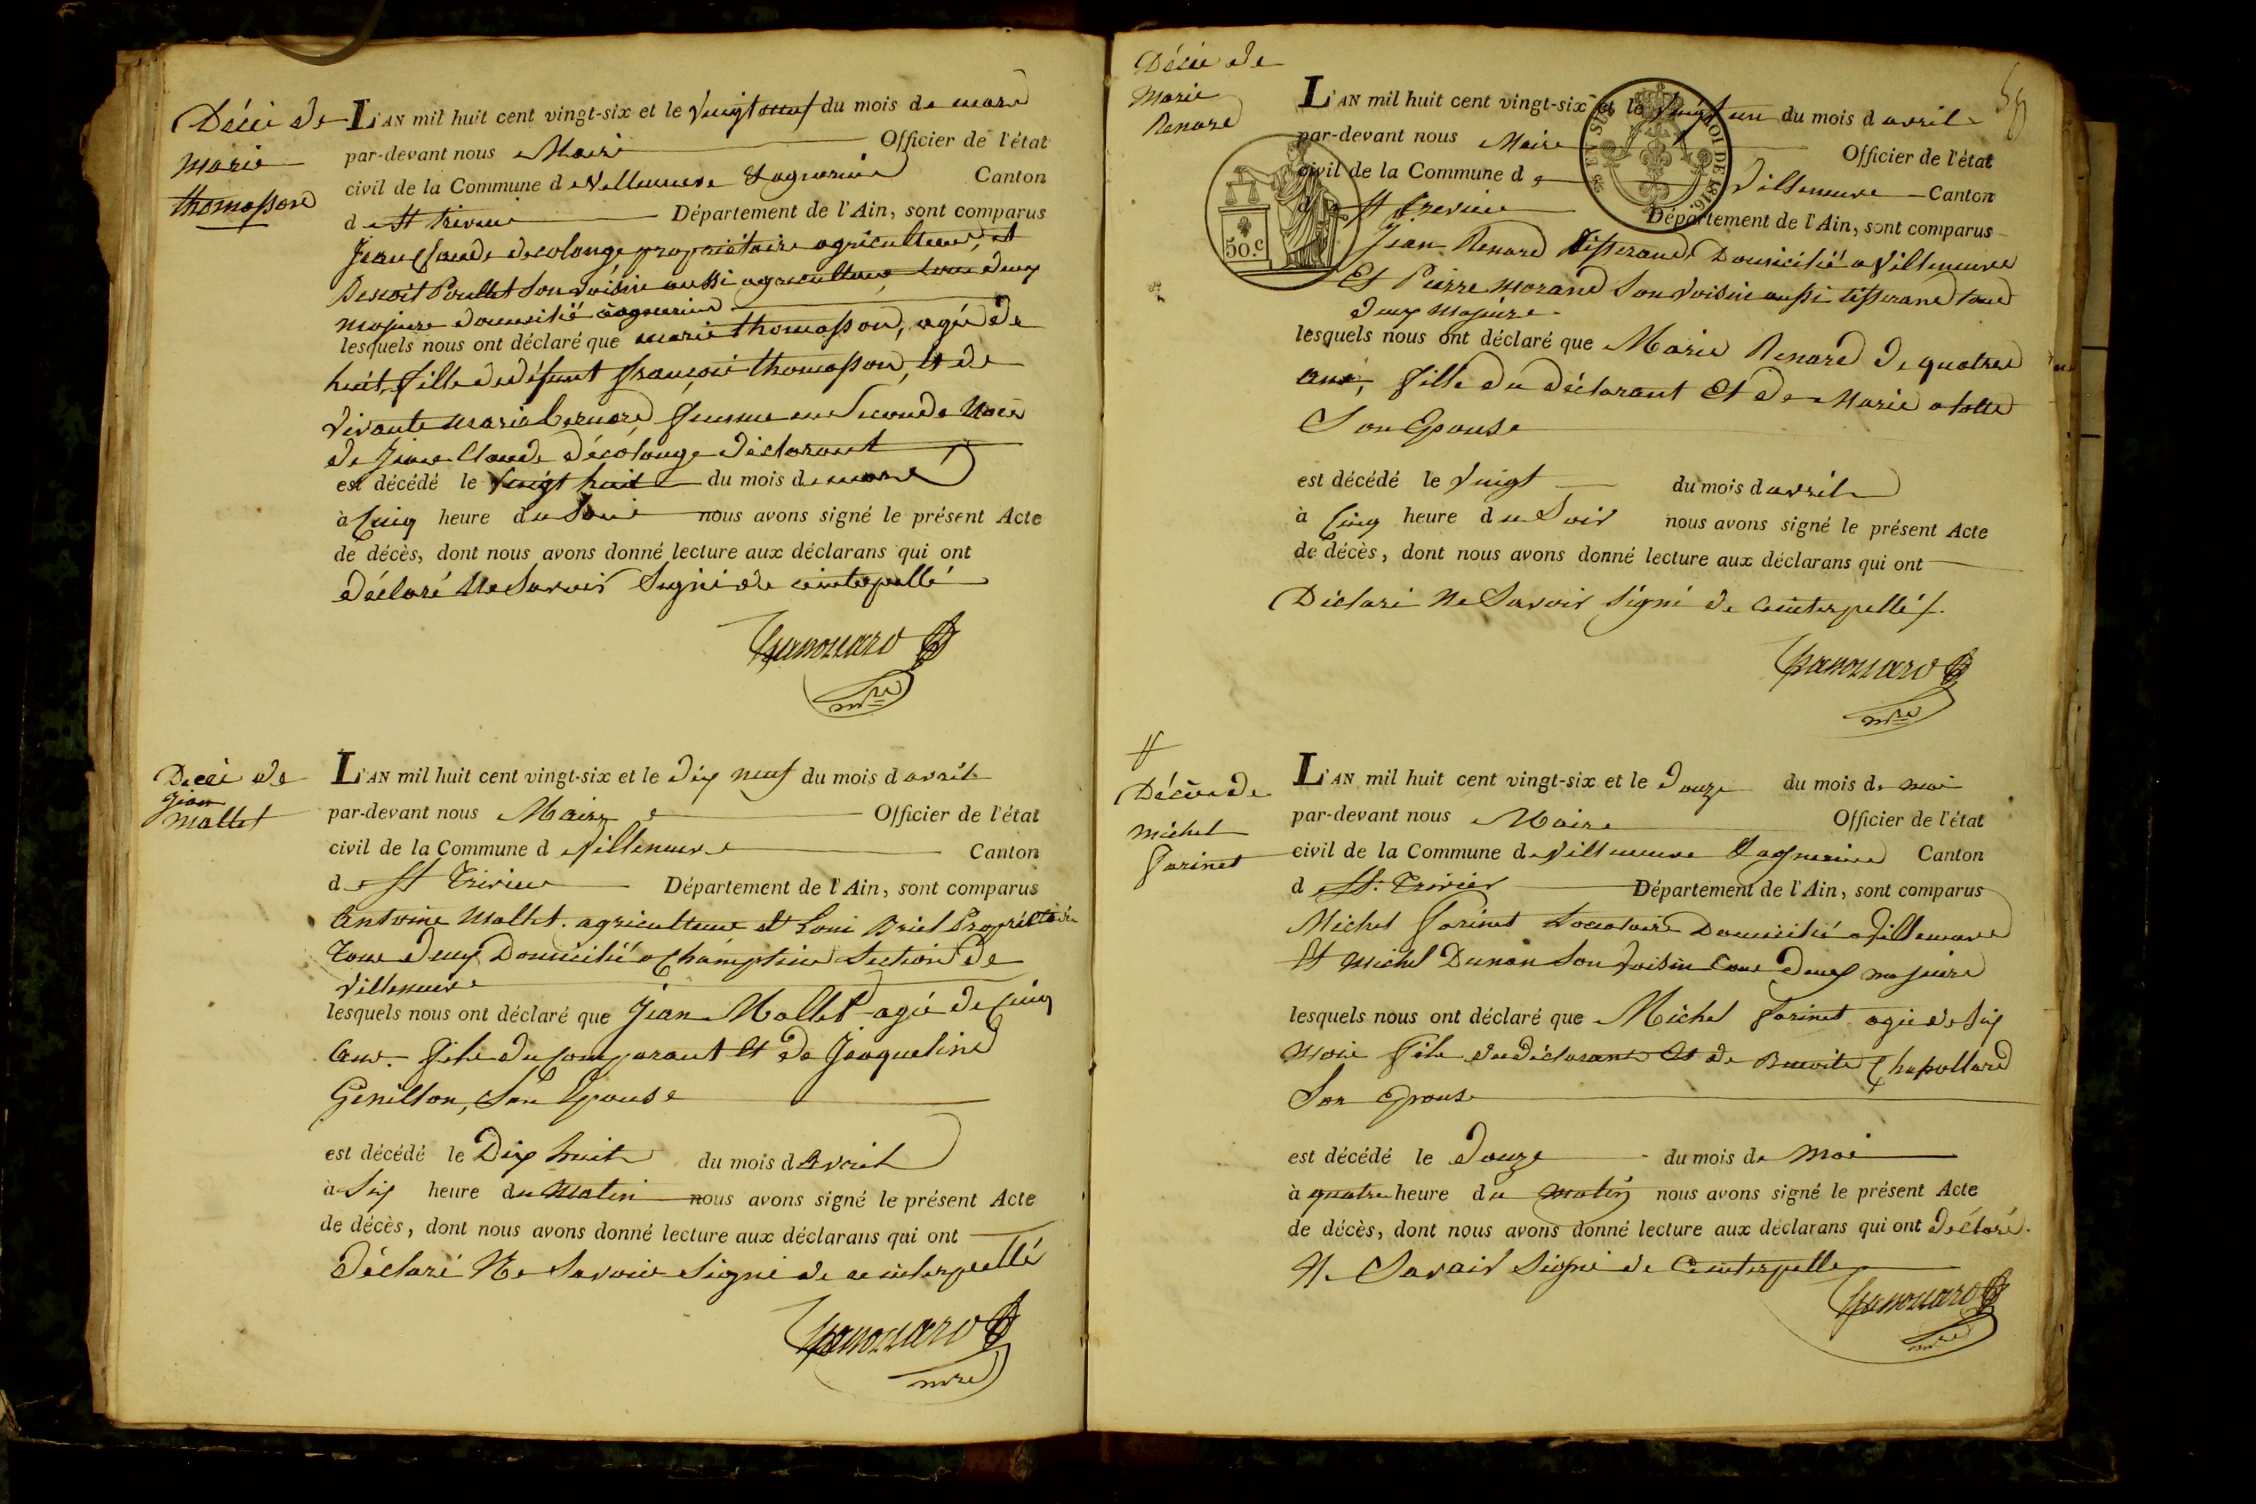 Décè de
marie
thomasson
L'AN mil huit cent vingt-six et le vingt neuf du mois de mars
par-devant nous Maire Officier de l'état
civil de la Commune de Villeneuve & agnerins Canton
de St trivier Département de l'Ain, sont comparus
Jean Claude decolonge propriétaire agriculteur, et
Benoit Poullet son voisin aussi agriculteur, tous deux
majeurs domicilié à agnerins
lesquels nous ont déclaré que marie thomasson, agée de
huit, fille de défunt françois thomasson, et de
vivante marie bernard femme en seconde Noces
de Jean Claude décolonge déclarant
est décédé le vingt huit du mois de mars
à cinq heure du soir nous avons signé le présent Acte
de décès, dont nous avons donné lecture aux déclarans qui ont
déclaré Ne Savoir Signé de ce interpellé
mre
Décè de
Jean
mallet
L'AN mil huit cent vingt-six et le dix neuf du mois d avril
par-devant nous Maire Officier de l'état
civil de la Commune de Villeneuve Canton
de St Trivier Département de l'Ain, sont comparus
Antoine Mallet agriculteur et Loui Briel Propriétaire
tous deux Domicilié a Champtein Section de
Villeneuve
lesquels nous ont déclaré que Jean Mallet agée de cinq
ans fils du comparant et de Jaqueline
Genillon, Son Epouse
est décédé le Dix huit du mois d Avril
à Six heure du Matin nous avons signé le présent Acte
de décès, dont nous avons donné lecture aux déclarans qui ont
déclaré Ne Savoir Signé de ce interpellé
mre
Décè de
Marie
Renard
58
L'AN mil huit cent vingt-six et le vingt un du mois d avril
par-devant nous Maire Officier de l'état
civil de la Commune de Villeneuve Canton
de St Trevier Département de l'Ain, sont comparus
50.c
ROI DE 1816.
Jean Renard tisserand Domicilié a Villeneuve
Et Pierre morand Son voisin aussi tisserand tous
deux Majeurs
lesquels nous ont déclaré que Marie Renard de quatre
ans, fille du déclarant Et de Marie
Son Epouse
est décédé le vingt du mois d avril
à Cinq heure du Soir nous avons signé le présent Acte
de décès, dont nous avons donné lecture aux déclarans qui ont
Déclaré Ne Savoir Signé de ce interpellé
mre
Décès de
michel
farinet
L'AN mil huit cent vingt-six et le douze du mois de mai
par-devant nous Maire Officier de l'état
civil de la Commune de Villeneuve & agnerins Canton
de St. Trivier Département de l'Ain, sont comparus
Michel farinet Locataire Domicilié a Villeneuve
Et Michel Dunan Son voisin tous deux majeurs
lesquels nous ont déclaré que Michel farinet agée de Six
Mois fils du déclarant et de Benoite Chapollard
Son Epouse
est décédé le douze du mois de Mai
à quatre heure du matin nous avons signé le présent Acte
de décès, dont nous avons donné lecture aux déclarans qui ont déclaré
Ne Savoir Signé de ce interpellé
mre